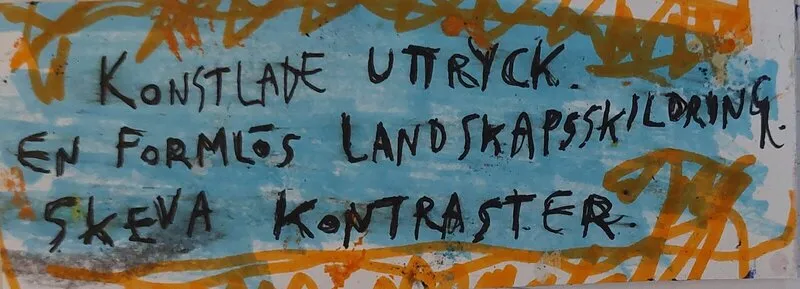 KONSTLADE UTTRYCK.
EN FORMLÖS LANDSKAPSSKILDRING.
SKEVA KONTRASTER.